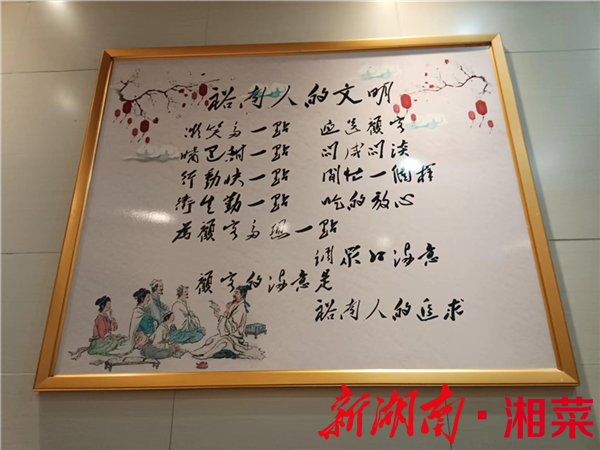 裕南人的文明
微笑多一點 迎送顧客
嘴巴甜一點 問咸問淡
行動快一點 閒忙一個樣
衛生勤一點 吃的放心
為顧客多想一點
調眾口滿意
顧客的滿意是
裕南人的追求
新湖南·湘菜